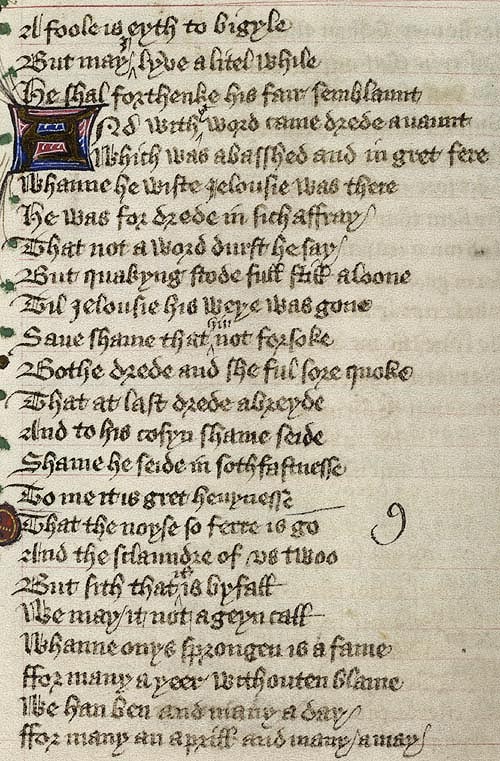 A foole is eyth to bigyle
But may I lyve a litel while
He shal forthenke his fair semblaunt
And with word came drede auaunt
Which was abasshed and in gret fere
Whanne he wiste jelousie was there
He was for drede in sich affray
That not a word durst he say
But quakyng stode full still aloone
Til jelousie his weye was gone
Saue shame that him not forsoke
Bothe drede and she ful sore quoke
That at last drede abreyde
And to his cosyn shame seide
Shame he seide in sothfastnesse
To me it is gret heuynesse
That the noyse so ferre is go
And the sclaundre of vs twoo
But sith that it is byfall
We may it not ageyn call
Whanne onys sprongen is a fame
ffor many a yeer withouten blame
We han ben and many a day
ffor many an aprill and many a may